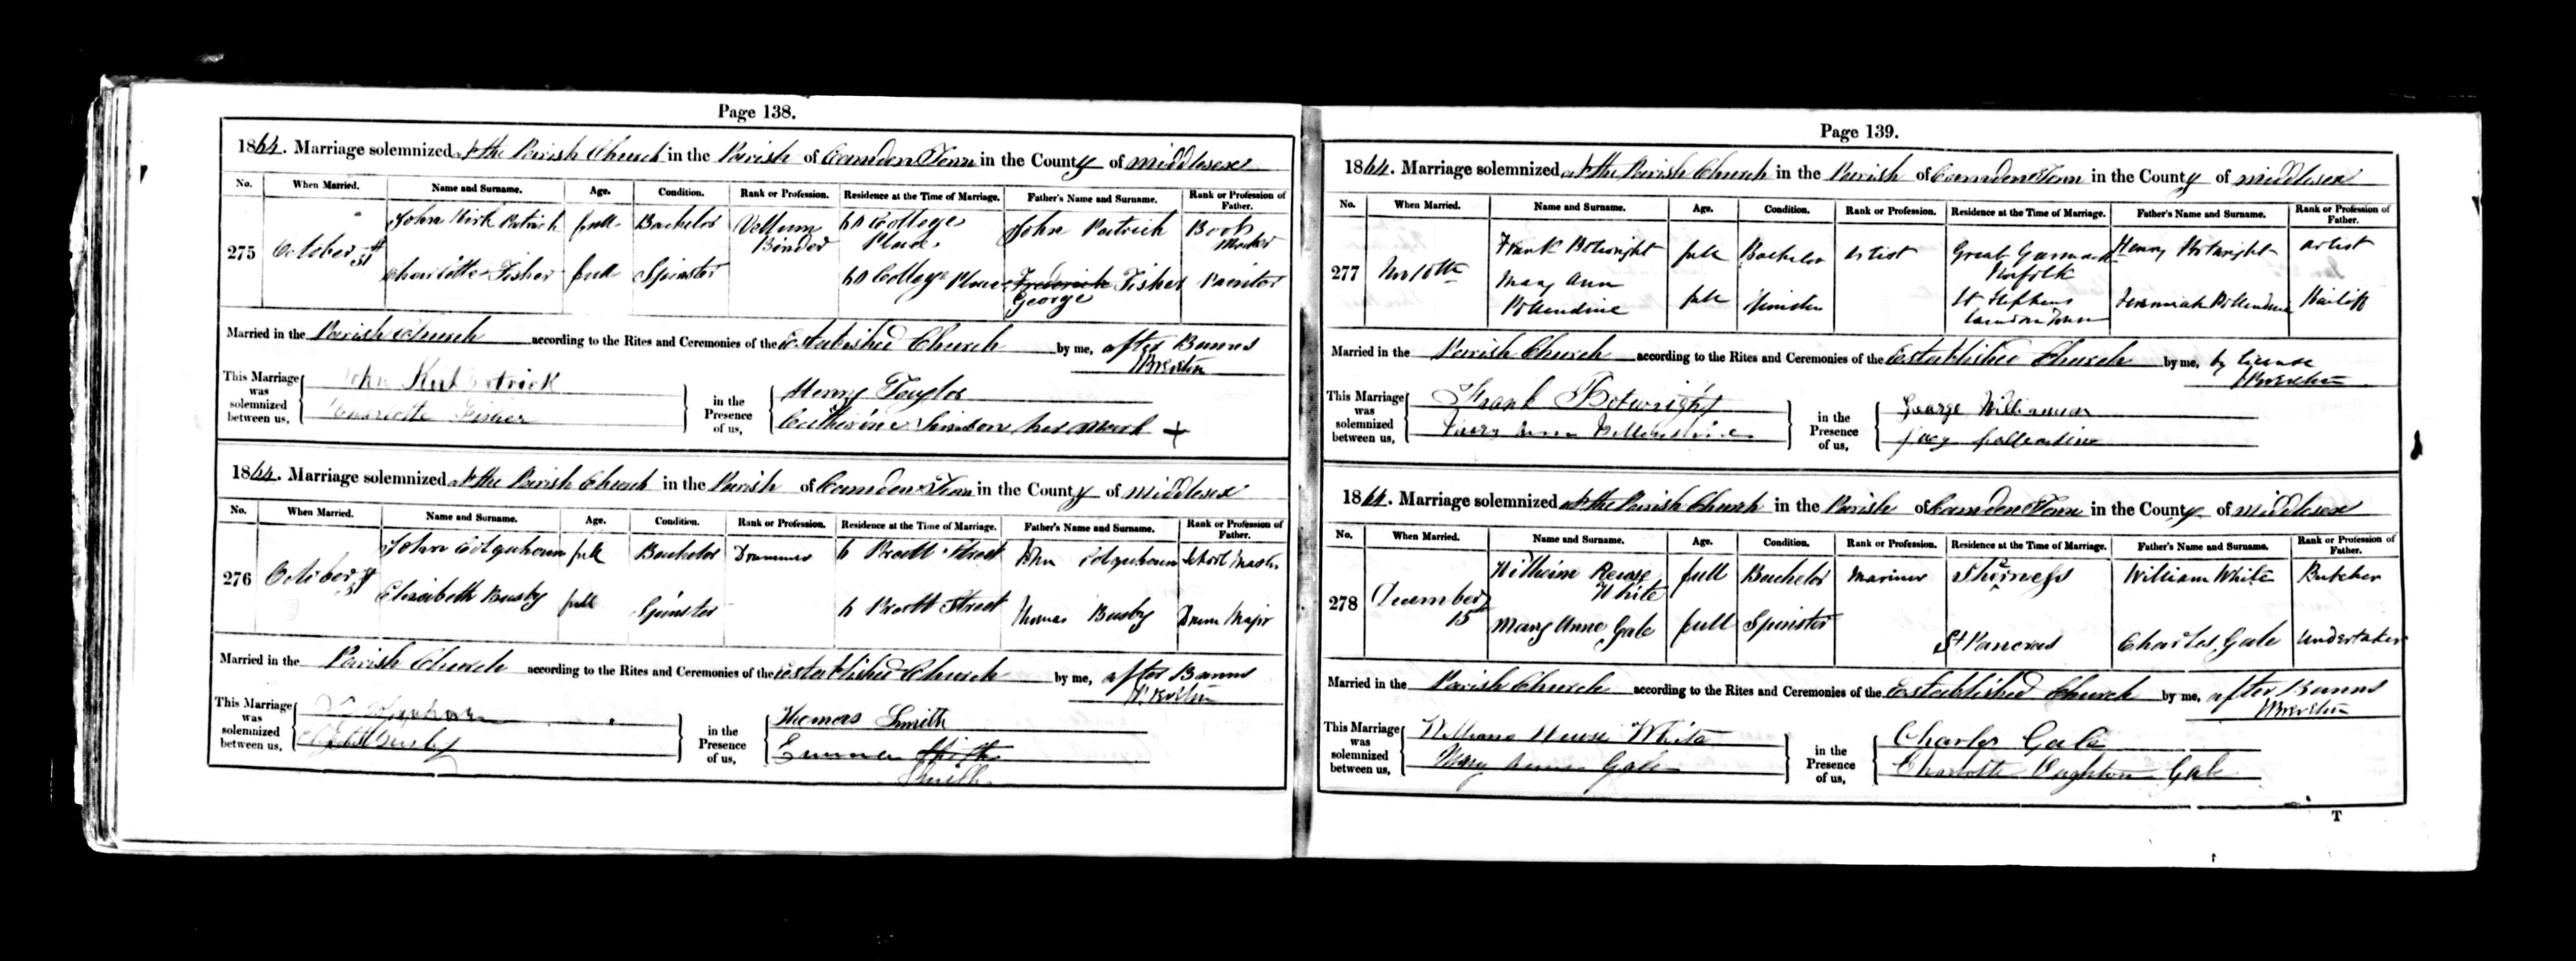 Page 138.
1864. Marriage solemnized at the Parish Church in the Parish of Camden Town in the County of Middlesex
No. When Married. Name and Surname. Age. Condition. Rank or Profession. Residence at the Time of Marriage. Father's Name and Surname. Rank or Profession of Father.
275 October 31st John Kirk Patrick full Bachelor Vellum Binder College Place John Patrick Book
Charlotte Fisher full Spinster College Place Frederick Fisher George
Married in the Parish Church according to the Rites and Ceremonies of the Established Church by me, after Banns
This Marriage was solemnized between us, John Kirk Patrick
Charlotte Fisher
in the Presence of us, Henry Taylor
Catherine her mark +
1864. Marriage solemnized at the Parish Church in the Parish of Camden Town in the County of Middlesex
No. When Married. Name and Surname. Age. Condition. Rank or Profession. Residence at the Time of Marriage. Father's Name and Surname. Rank or Profession of Father.
276 October 31st John Colquhoun full Bachelor Drummer 6 Pratt Street John Colquhoun School Master
Elizabeth Busby full Spinster 6 Pratt Street Thomas Busby Drum Major
Married in the Parish Church according to the Rites and Ceremonies of the Established Church by me, after Banns
This Marriage was solemnized between us, Colquhoun
Busby
in the Presence of us, Thomas Smith
Emma Smith
Smith
Page 139.
1864. Marriage solemnized at the Parish Church in the Parish of Camden Town in the County of Middlesex
No. When Married. Name and Surname. Age. Condition. Rank or Profession. Residence at the Time of Marriage. Father's Name and Surname. Rank or Profession of Father.
277 Nov 10th Frank Botwright full Bachelor Artist Great Yarmouth Norfolk Henry Botwright Artist
Mary Ann Bollendine full Spinster St Stephens Camden Town Jeremiah Bollendine Bailiff
Married in the Parish Church according to the Rites and Ceremonies of the Established Church by me, by license
This Marriage was solemnized between us, Frank Botwright
Mary Ann
in the Presence of us, George Williamson
1864. Marriage solemnized at the Parish Church in the Parish of Camden Town in the County of Middlesex
No. When Married. Name and Surname. Age. Condition. Rank or Profession. Residence at the Time of Marriage. Father's Name and Surname. Rank or Profession of Father.
278 December 15 William White full Bachelor Mariner Sheerness William White Butcher
Mary Anne Gale full Spinster St Pancras Charles Gale Undertaker
Married in the Parish Church according to the Rites and Ceremonies of the Established Church by me, after Banns
This Marriage was solemnized between us, William White
Mary Anne Gale
in the Presence of us, Charles Gale
Charlotte Gale
T